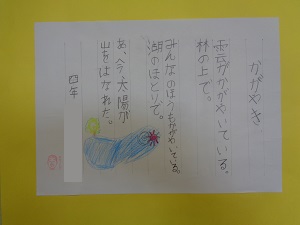 かがやき
雲がかがやいている。
林の上で。
みんなのほうもかがやいている。
湖のほとりで。
あ、今、太陽が
山をはなれた。
四年